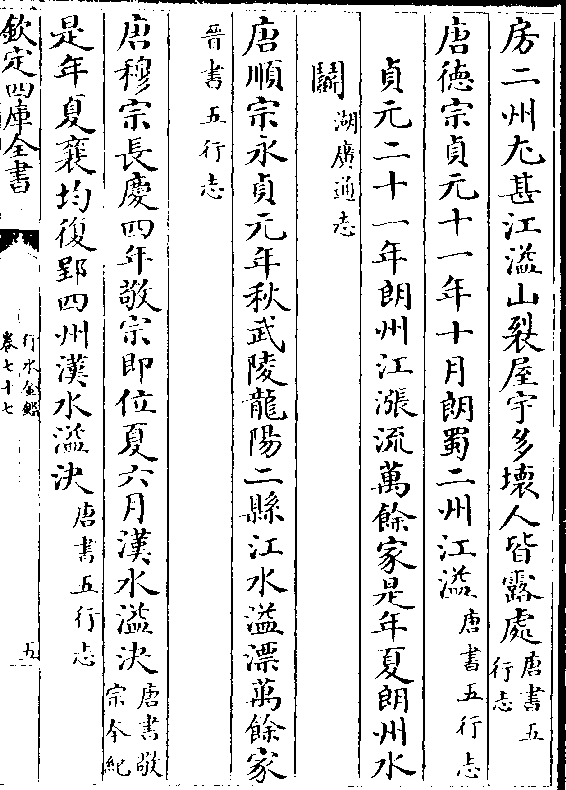 房二州尤甚江溢山裂屋宇多壞人皆露處唐書五行志
唐徳宗貞元十一年十月朗蜀二州江溢唐書五行志
貞元二十一年朗州江漲流萬餘家是年夏朗州水
鬬湖廣通志
唐順宗永貞元年秋武陵龍陽二縣江水溢漂萬餘家
晉書五行志
唐穆宗長慶四年敬宗即位夏六月漢水溢決唐書敬宗本紀
是年夏襄均復郢四州漢水溢決唐書五行志
欽定四庫全書
行水金鑑
卷七十七
五